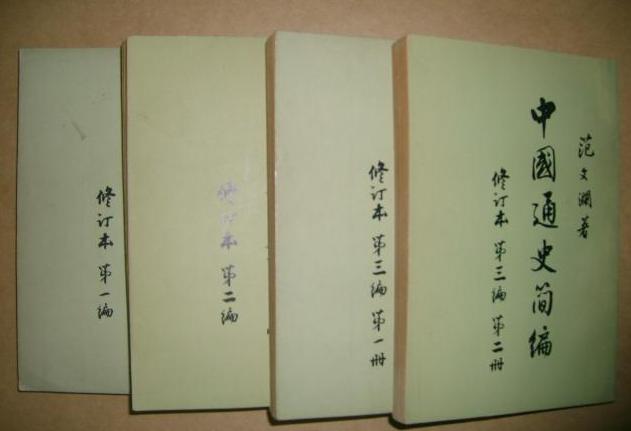 修订本 第一编
修订本 第二编
修订本 第三编 第一册
中國通史简编
范文澜著
修订本 第三编 第二册